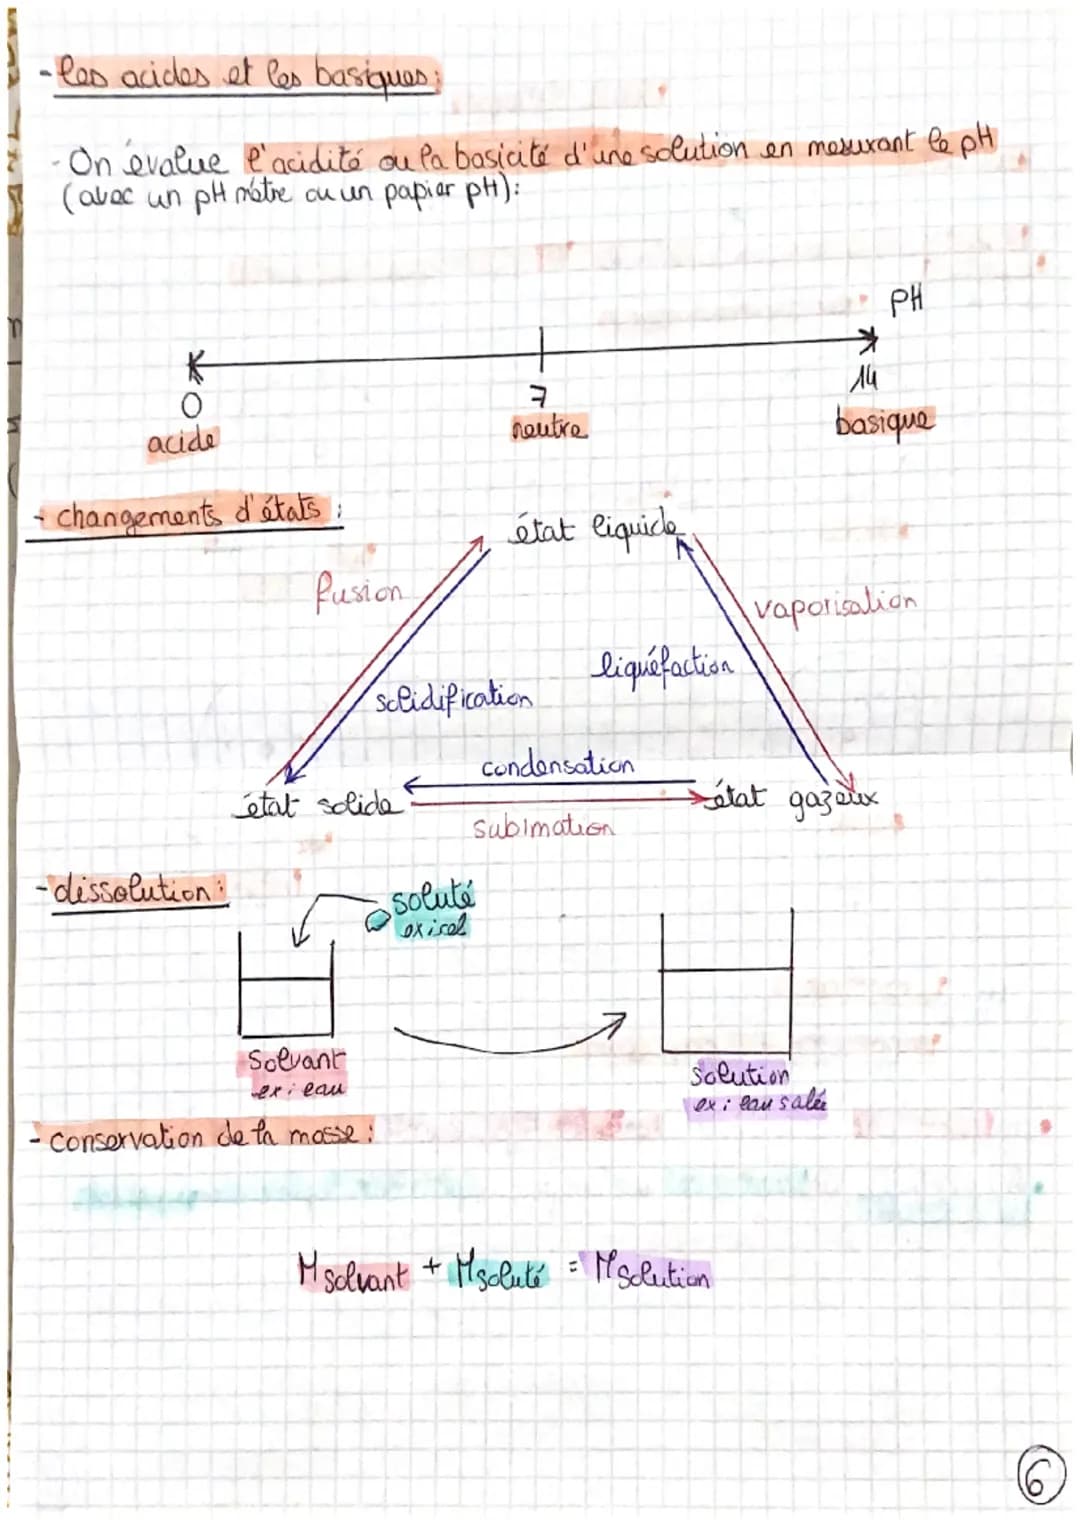 - les acides et les basiques :
- On évalue l'acidité ou la basicité d'une solution en mesurant le pH
(avec un pH mètre ou un papier pH) :
PH
0
7
14
acide
neutre
basique
- changements d'états :
état liquide
fusion
vaporisation
liquéfaction
solidification
condensation
état solide
état gazeux
subimation
- dissolution :
soluté
ex : sel
Solvant
ex : eau
Solution
ex : eau salée
- conservation de la masse :
M solvant + M soluté = M solution
6